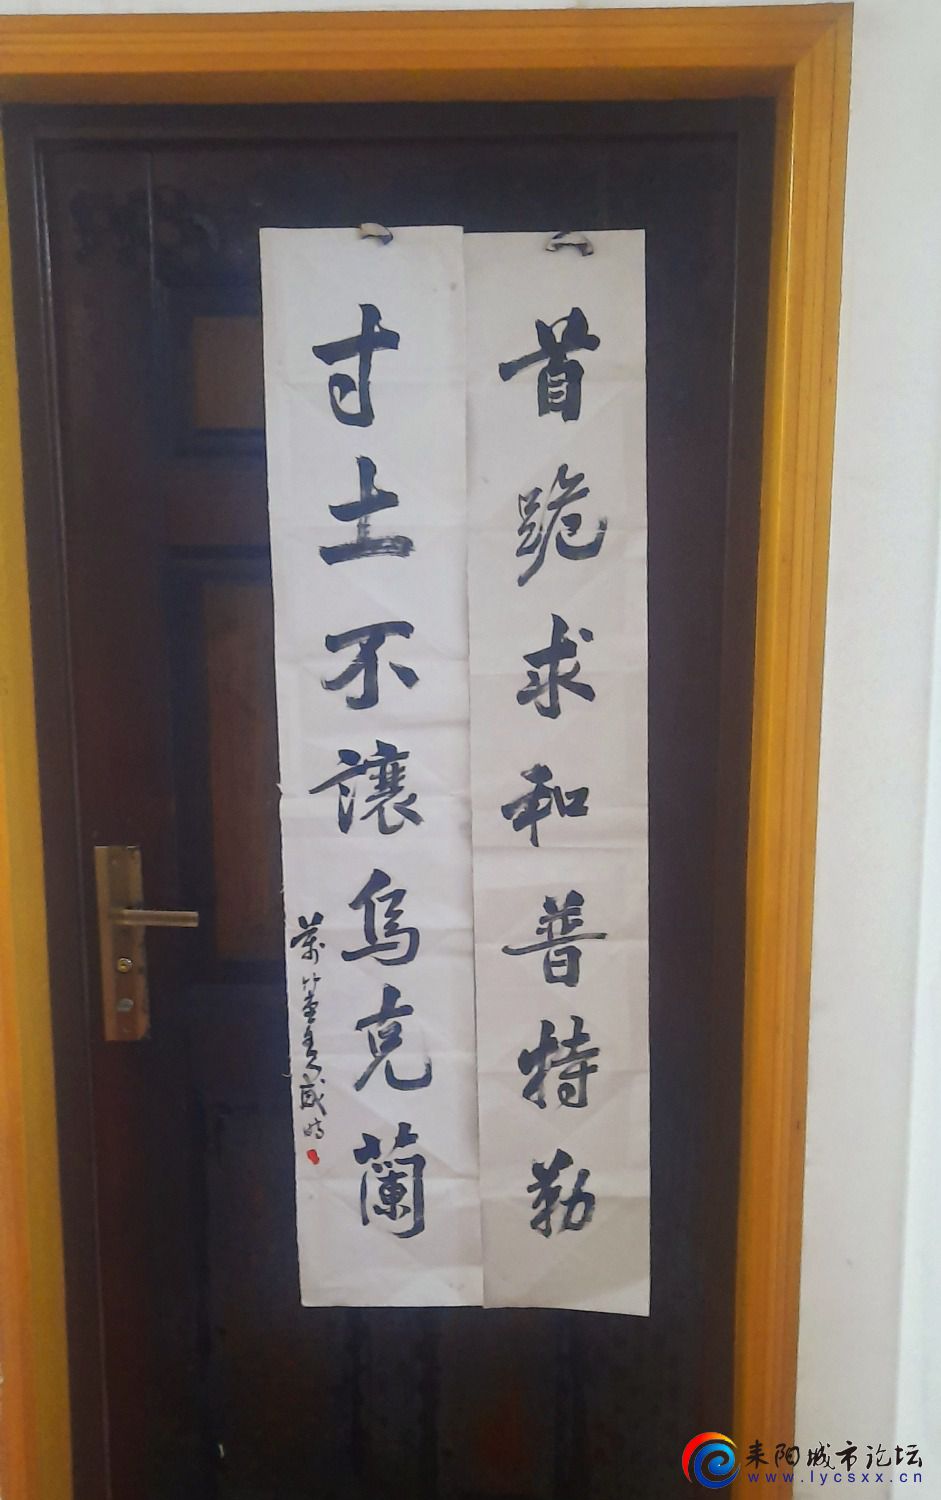 首跪求和普特勒
寸土不讓烏克蘭
耒阳城市论坛
www.lycsxx.cn